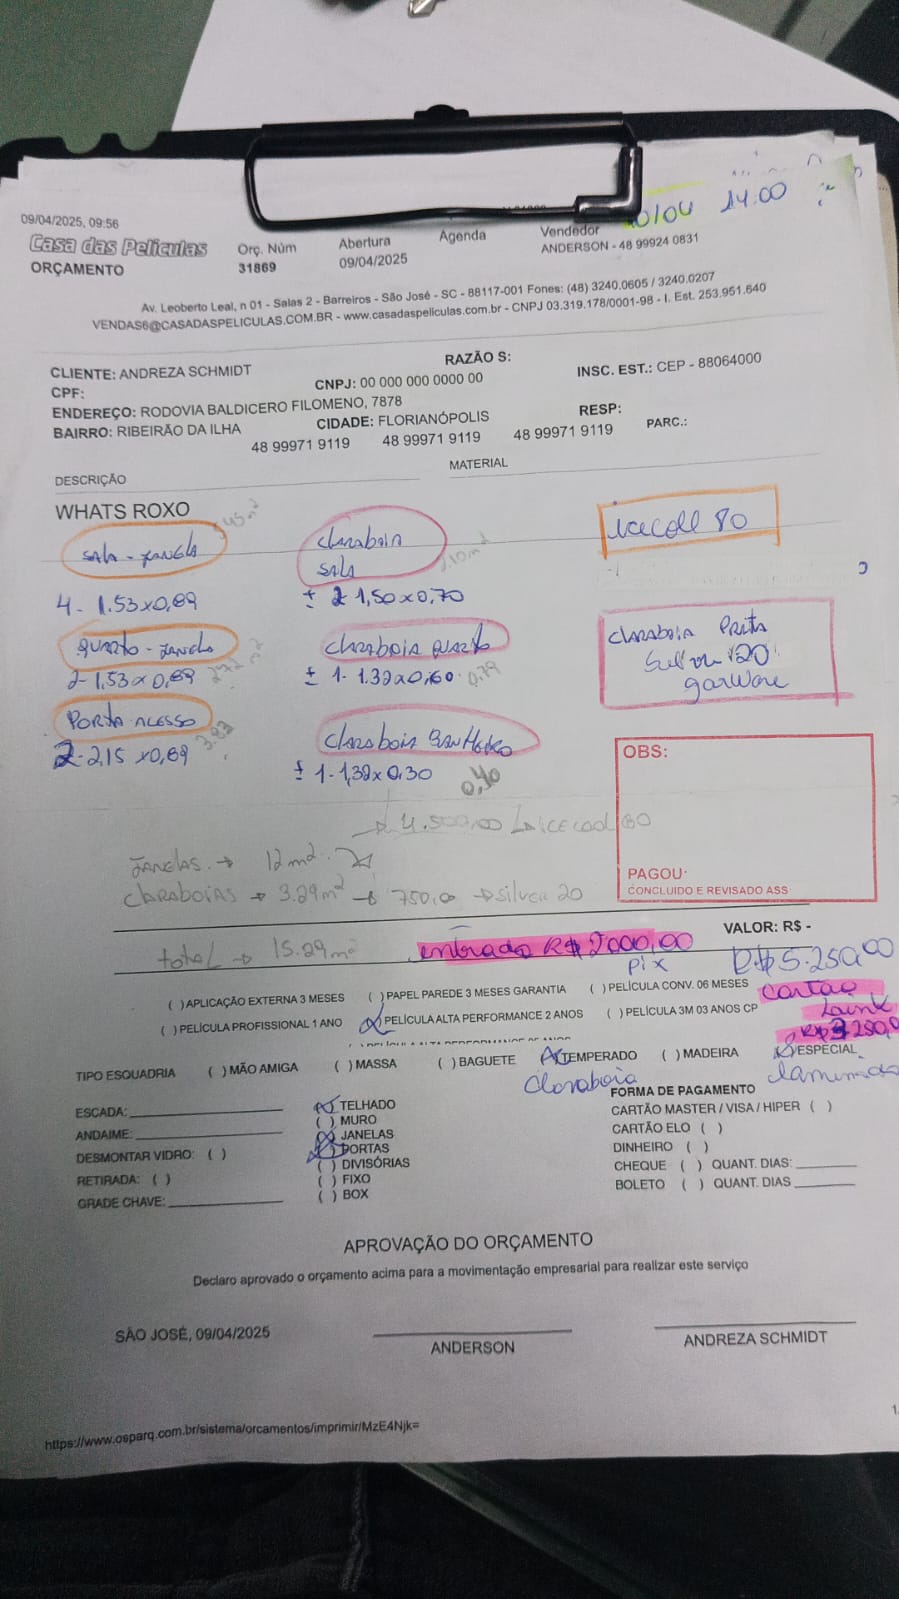 10/04 14:00
09/04/2025, 09:56
Casa das Películas
ORÇAMENTO
Orç. Núm
31869
Abertura
09/04/2025
Agenda
Vendedor
ANDERSON - 48 99924 0831
Av. Leoberto Leal, n 01 - Salas 2 - Barreiros - São José - SC - 88117-001 Fones: (48) 3240.0605 / 3240.0207
VENDAS6@CASADASPELICULAS.COM.BR - www.casadaspeliculas.com.br - CNPJ 03.319.178/0001-98 - I. Est. 253.951.640
CLIENTE: ANDREZA SCHMIDT RAZÃO S:
CPF: CNPJ: 00 000 000 0000 00 INSC. EST.: CEP - 88064000
ENDEREÇO: RODOVIA BALDICERO FILOMENO, 7878
BAIRRO: RIBEIRÃO DA ILHA CIDADE: FLORIANÓPOLIS RESP:
48 99971 9119 48 99971 9119 48 99971 9119 PARC.:
DESCRIÇÃO MATERIAL
WHATS ROXO
SALA - JANELA
4 - 1.53x0,89
QUARTO - JANELA
2 - 1,53x0,89 2.72 m2
PORTA ACESSO
2 - 2,15x0,89
Claraboia
SALA
± 2 1,50x0,70 2.10 m²
Claraboia QUARTO
± 1 - 1.32x0,60 0.79
Claraboia BANHEIRO
± 1 - 1,32x0,30 0,40
icecool 80
CLARABOIA PRATA
Silver 20
garware
OBS:
PAGOU:
CONCLUIDO E REVISADO ASS
→ 4.500,00 ↳ icecool 80
JANELAS → 12m²
CLARABOIAS → 3.29m² → 750,00 → silver 20
total → 15.29m²
entrada R$ 2000,00
pix
VALOR: R$ -
R$ 5.250,00
cartão
Link
R$ 3250,0
( ) APLICAÇÃO EXTERNA 3 MESES ( ) PAPEL PAREDE 3 MESES GARANTIA ( ) PELÍCULA CONV. 06 MESES
( ) PELÍCULA PROFISSIONAL 1 ANO (X) PELÍCULA ALTA PERFORMANCE 2 ANOS ( ) PELÍCULA 3M 03 ANOS CP
TIPO ESQUADRIA ( ) MÃO AMIGA ( ) MASSA ( ) BAGUETE (X) TEMPERADO ( ) MADEIRA (X) ESPECIAL
Claraboia
laminado
ESCADA:
ANDAIME:
DESMONTAR VIDRO: ( )
RETIRADA: ( )
GRADE CHAVE:
(X) TELHADO
( ) MURO
(X) JANELAS
(X) PORTAS
( ) DIVISÓRIAS
( ) FIXO
( ) BOX
FORMA DE PAGAMENTO
CARTÃO MASTER / VISA / HIPER ( )
CARTÃO ELO ( )
DINHEIRO ( )
CHEQUE ( ) QUANT. DIAS:
BOLETO ( ) QUANT. DIAS
APROVAÇÃO DO ORÇAMENTO
Declaro aprovado o orçamento acima para a movimentação empresarial para realizar este serviço
SÃO JOSÉ, 09/04/2025
ANDERSON
ANDREZA SCHMIDT
https://www.osparq.com.br/sistema/orcamentos/imprimir/MzE4Njk=